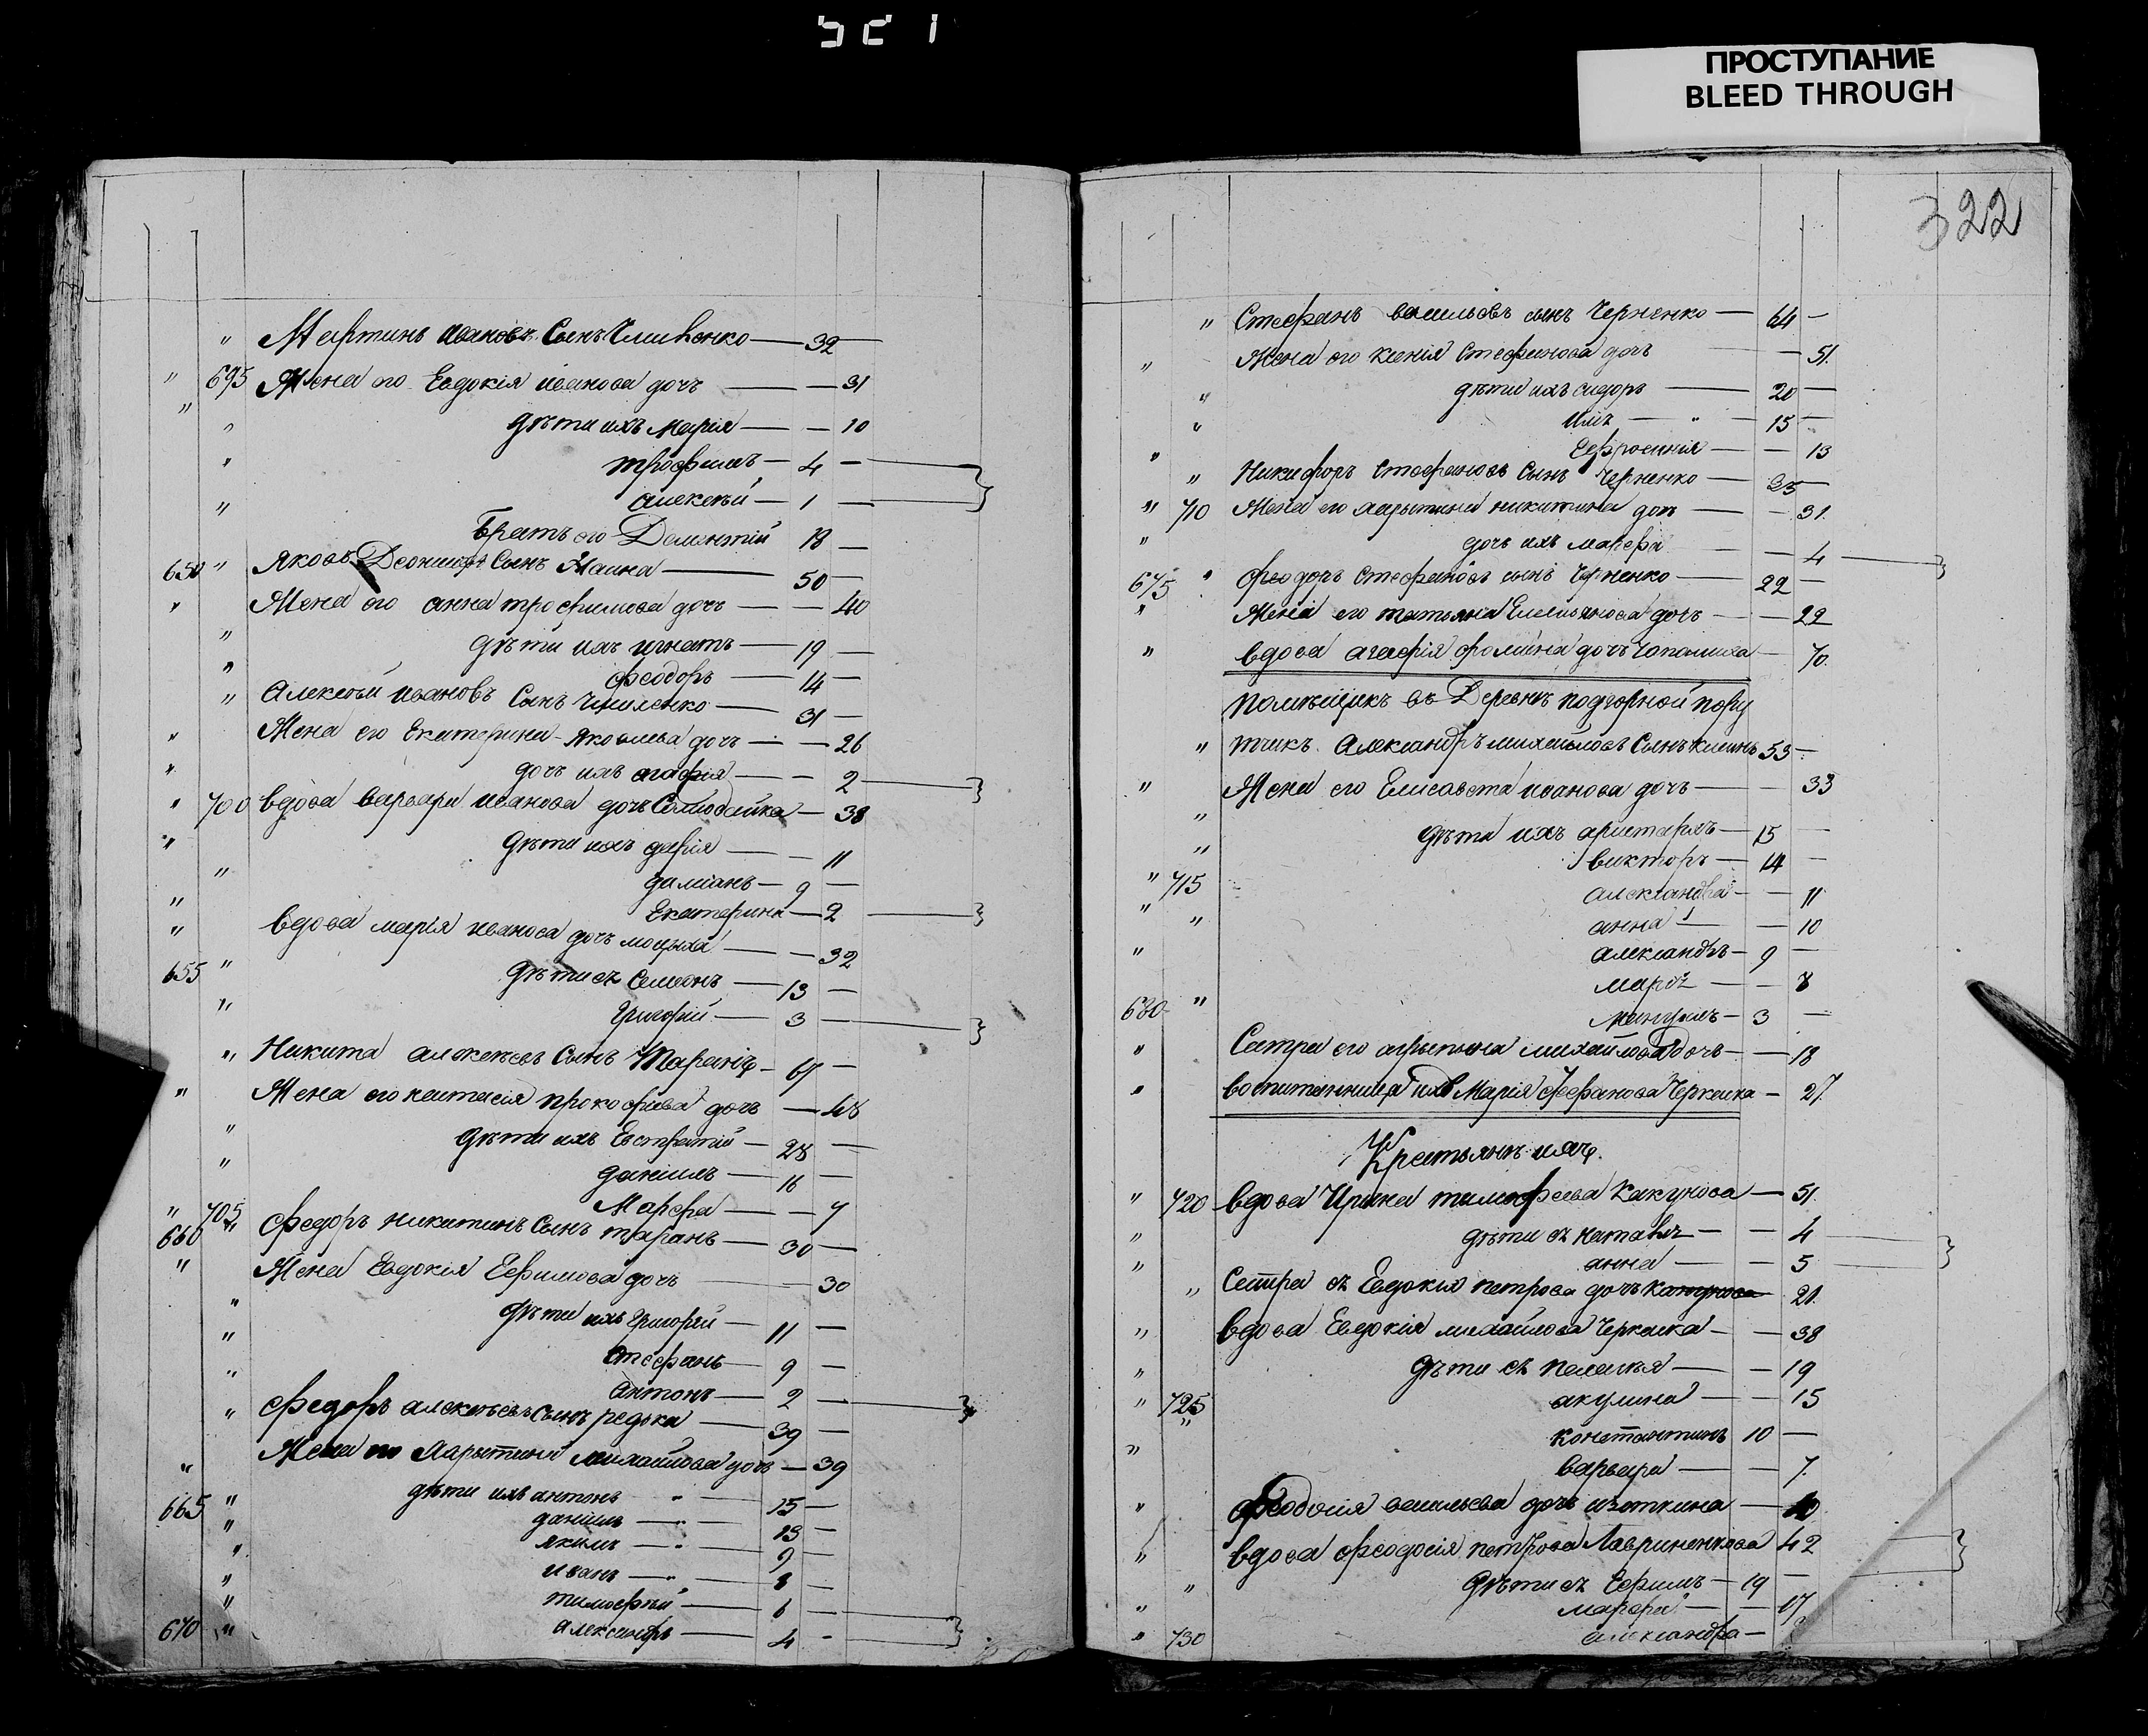 321
ПРОСТУПАНИЕ
BLEED THROUGH
322
" Мартинъ Ивановъ Сынъ — 32 —
" 695 Жена его Евдокія иванова дочъ — — 31
" дѣти ихъ Марія — — 10
" трофимъ — 4 —
" алексѣй — 1 —
Братъ его Дементій 18 —
650 " Яковъ Сынъ — 50 —
" Жена его анна трофимова дочъ — — 40
" дѣти ихъ игнатъ — 19 —
" феодоръ — 14 —
" Алексѣй ивановъ Сынъ — 31 —
" Жена его Екатерина Яковлева дочъ — — 26
" дочъ ихъ агафія — — 2
" 700 вдова варвара иванова дочъ — 38
" дѣти ихъ дарія — — 11
" даміанъ — 9 —
" Екатерина — 2
" вдова марія иванова дочъ — — 32
655 " дѣти еѣ Семіонъ — 13 —
" Григорій — 3 —
" Никита алексѣевъ Сынъ Таранъ — 67 —
" Жена его настасія прокофіева дочъ — 48
" дѣти ихъ Евстратій — 28 —
" даніилъ — 16 —
" 705 Марфа — — 7
660 " Федоръ никитинъ Сынъ таранъ — 30 —
" Жена Евдокія Еефимова дочъ — — 30
" дѣти ихъ Григорій — 11 —
" Стефанъ — 9 —
" антонъ — 2 —
" Федоръ алексѣевъ Сынъ редька — 39 —
" Жена его михайлова дочъ — 39
665 " дѣти ихъ антонъ " — 15 —
" даніилъ — 13 —
" якимъ — 9
" иванъ — 8 —
" тимофѣй — 6 —
670 " александръ — 4 —
" Стефанъ васильевъ сынъ Черненко — 64 —
" Жена его ксенія Стефанова дочъ — 51
" дѣти ихъ сидоръ — 20 —
" — " — 15 —
" Еефросинія — — 13
" Никифоръ Стефановъ Сынъ Черненко — 35 —
" 710 Жена его никитина дочъ — — 31
" дочъ ихъ марфа — 4
675 " Феодоръ Стефановъ сынъ Черненко — 22 —
" Жена его татьяна Емельянова дочъ — — 22
" вдова агафія фомина дочъ — 70
помѣщикъ въ Деревнѣ подгорной пору
" тчикъ Александръ михайловъ Сынъ 53 —
" Жена его Елисавета иванова дочъ — — 33
" дѣти ихъ аристархъ — 15 —
" викторъ — 14 —
" 715 александра — — 11
" " анна — — 10
" александръ — 9 —
— — 8
680 " — 3 —
" Сестра его михайлова дочъ — — 18
" воспитанница ихъ Марія Стефанова Черкаска — 27
Крестьянъ ихъ
" 720 вдова Ирина тимофеева Какунова — 51
" дѣти еѣ — — 4
" анна — — 5
" Сестра еѣ Евдокія петрова дочъ 21
" вдова Евдокія михайлова Черкаска — — 38
" дѣти еѣ пелагія — — 19
" 725 акулина — — 15
" константинъ 10 —
" варвара — — 7
" Феодосія васильева дочъ —
" вдова феодосія петрова Лавриненкова 42
" дѣти еѣ Еефимъ — 19 —
" марфа — — 17
" 730 александра —